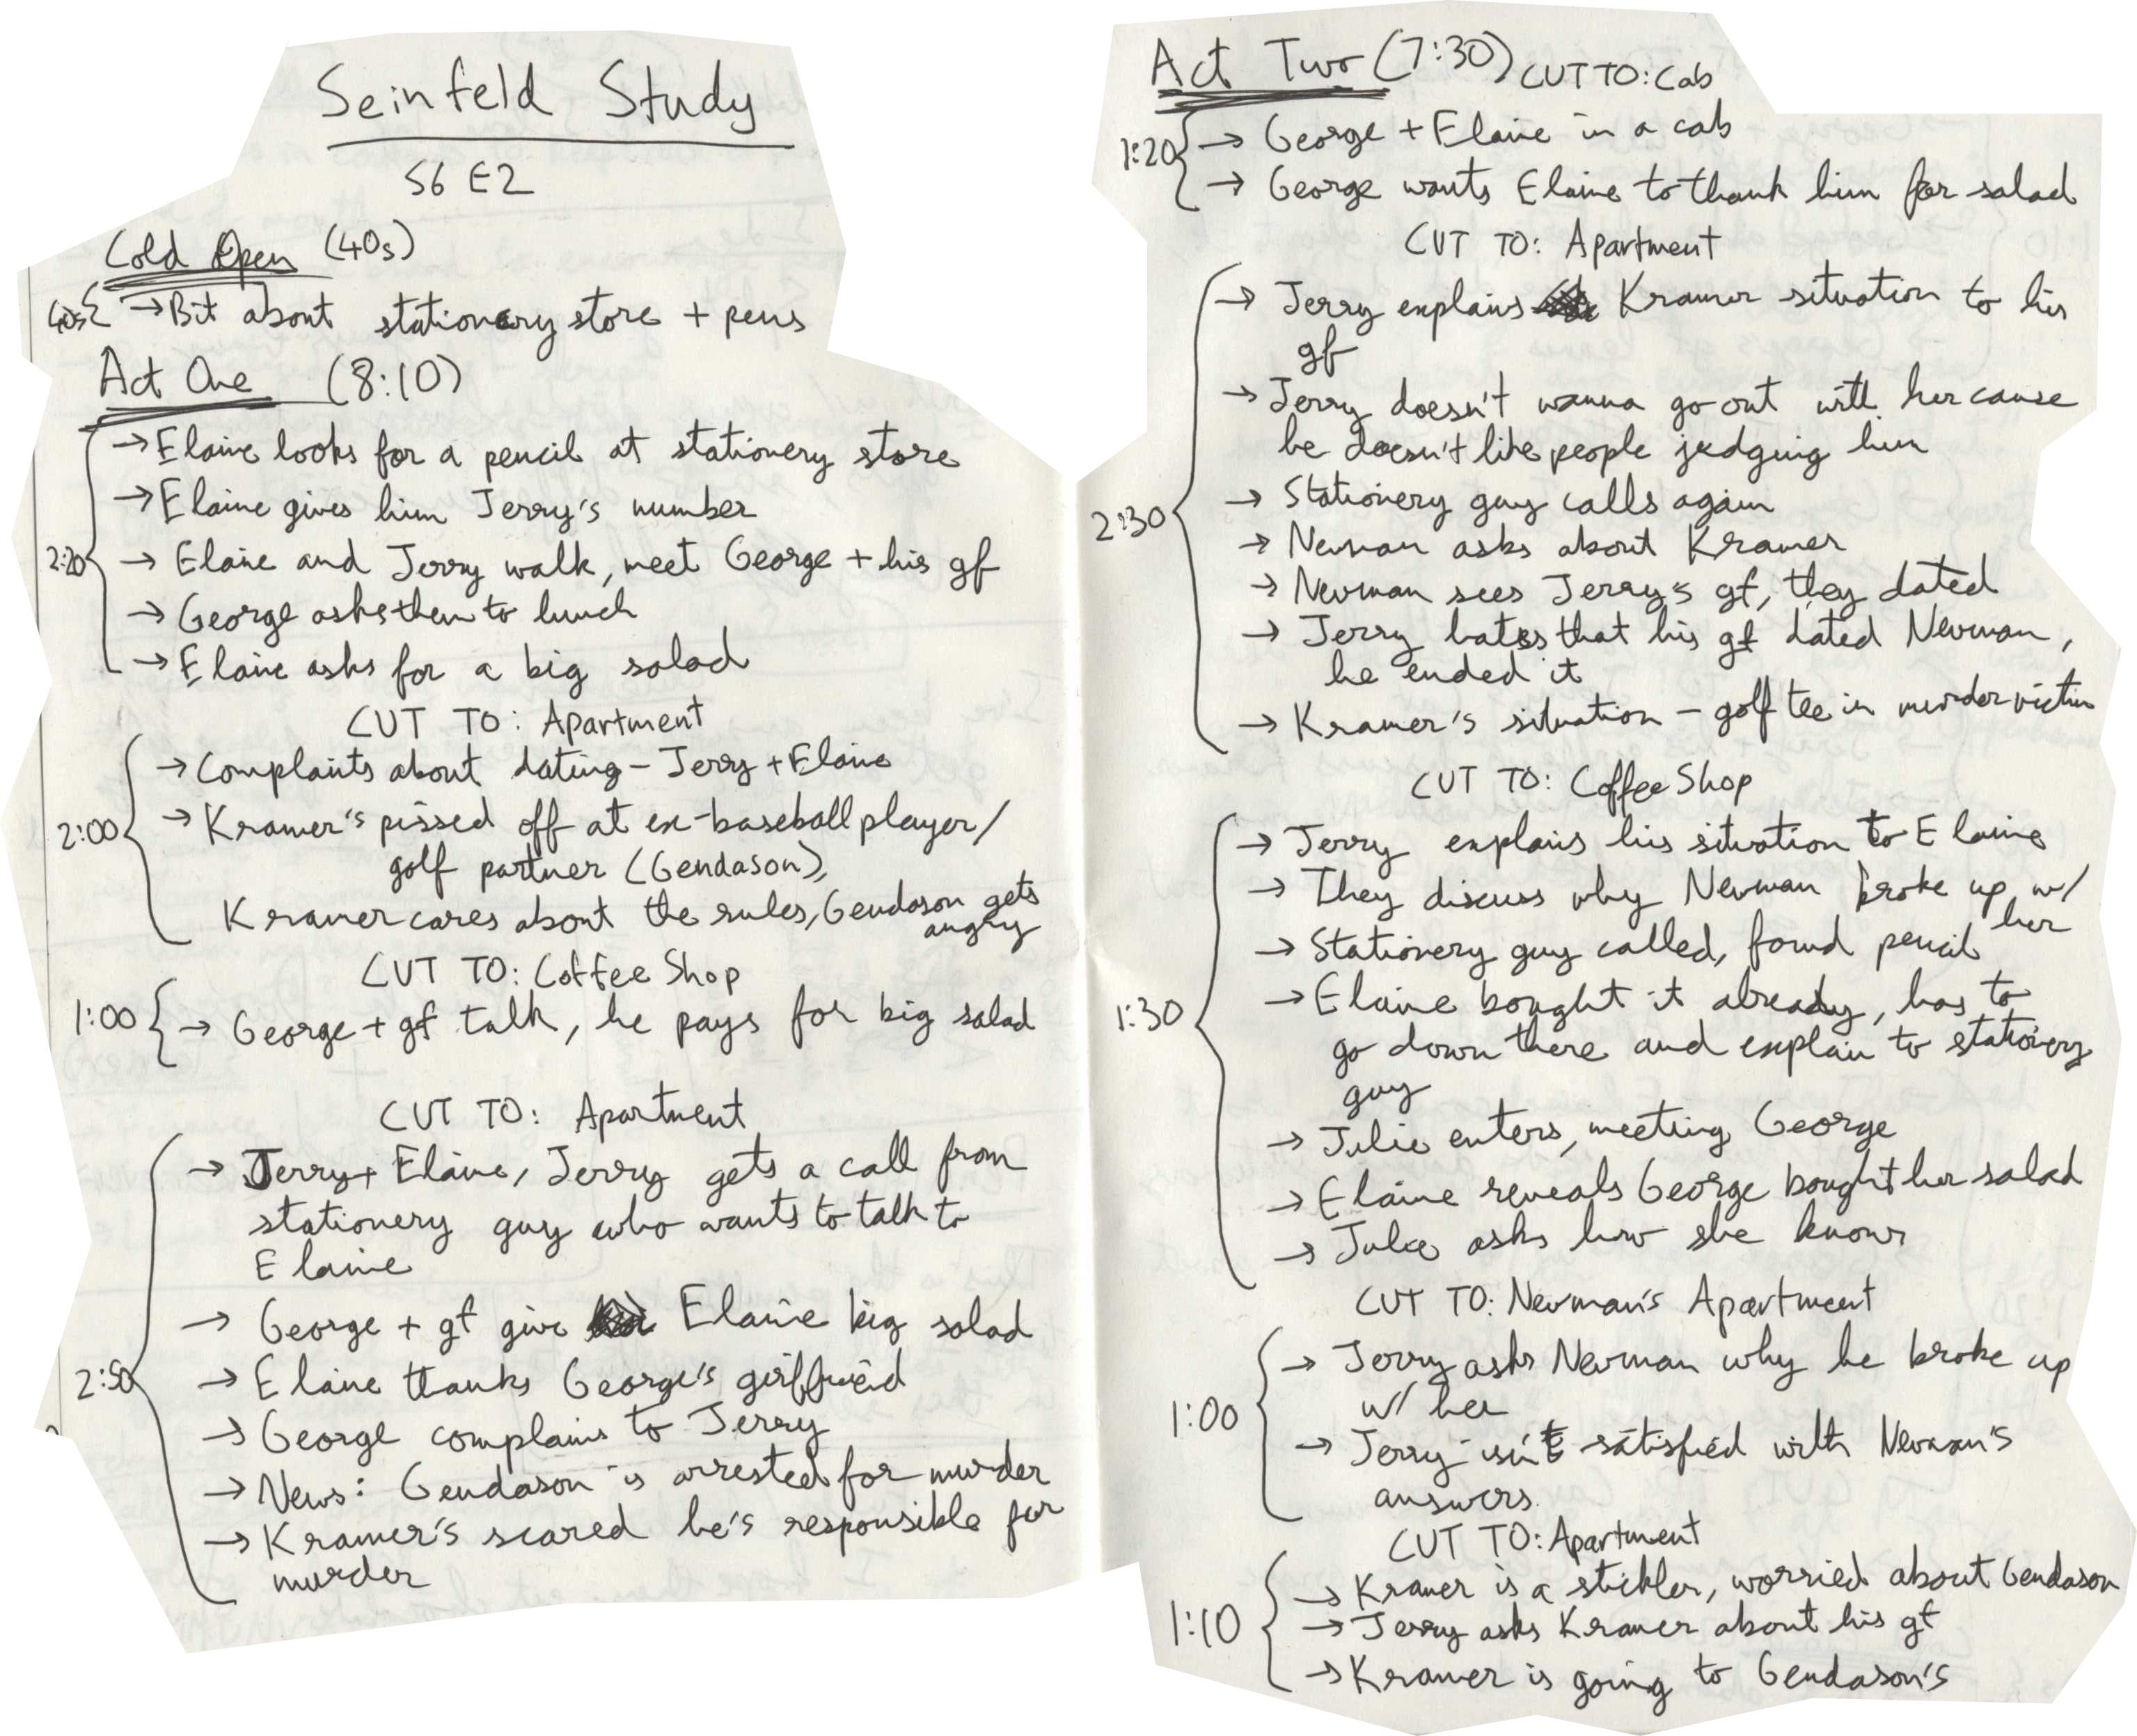 Seinfeld Study
S6 E2
Cold Open (40s)
40s → Bit about stationery store + pens
Act One (8:10)
→ Elaine looks for a pencil at stationery store
→ Elaine gives him Jerry's number
2:20 → Elaine and Jerry walk, meet George + his gf
→ George asks them to lunch
→ Elaine asks for a big salad
CUT TO: Apartment
→ Complaints about dating - Jerry + Elaine
2:00 → Kramer's pissed off at ex-baseball player/
golf partner (Gendason),
Kramer cares about the rules, Gendason gets
angry
CUT TO: Coffee Shop
1:00 → George + gf talk, he pays for big salad
CUT TO: Apartment
→ Jerry + Elaine, Jerry gets a call from
stationery guy who wants to talk to
Elaine
→ George + gf give Elaine big salad
2:50 → Elaine thanks George's girlfriend
→ George complains to Jerry
→ News: Gendason is arrested for murder
→ Kramer's scared he's responsible for
murder
Act Two (7:30) CUT TO: Cab
1:20 → George + Elaine in a cab
→ George wants Elaine to thank him for salad
CUT TO: Apartment
→ Jerry explains Kramer situation to his
gf
→ Jerry doesn't wanna go out with her cause
he doesn't like people judging him
2:30 → Stationery guy calls again
→ Newman asks about Kramer
→ Newman sees Jerry's gf, they dated
→ Jerry hates that his gf dated Newman,
he ended it
→ Kramer's situation - golf tee in murder victim
CUT TO: Coffee Shop
→ Jerry explains his situation to Elaine
→ They discuss why Newman broke up w/
her
→ Stationery guy called, found pencil
1:30 → Elaine bought it already, has to
go down there and explain to stationery
guy
→ Julie enters, meeting George
→ Elaine reveals George bought her salad
→ Julie asks how she knows
CUT TO: Newman's Apartment
→ Jerry asks Newman why he broke up
1:00 w/ her
→ Jerry isn't satisfied with Newman's
answers.
CUT TO: Apartment
→ Kramer is a stickler, worried about Gendason
1:10 → Jerry asks Kramer about his gf
→ Kramer is going to Gendason's